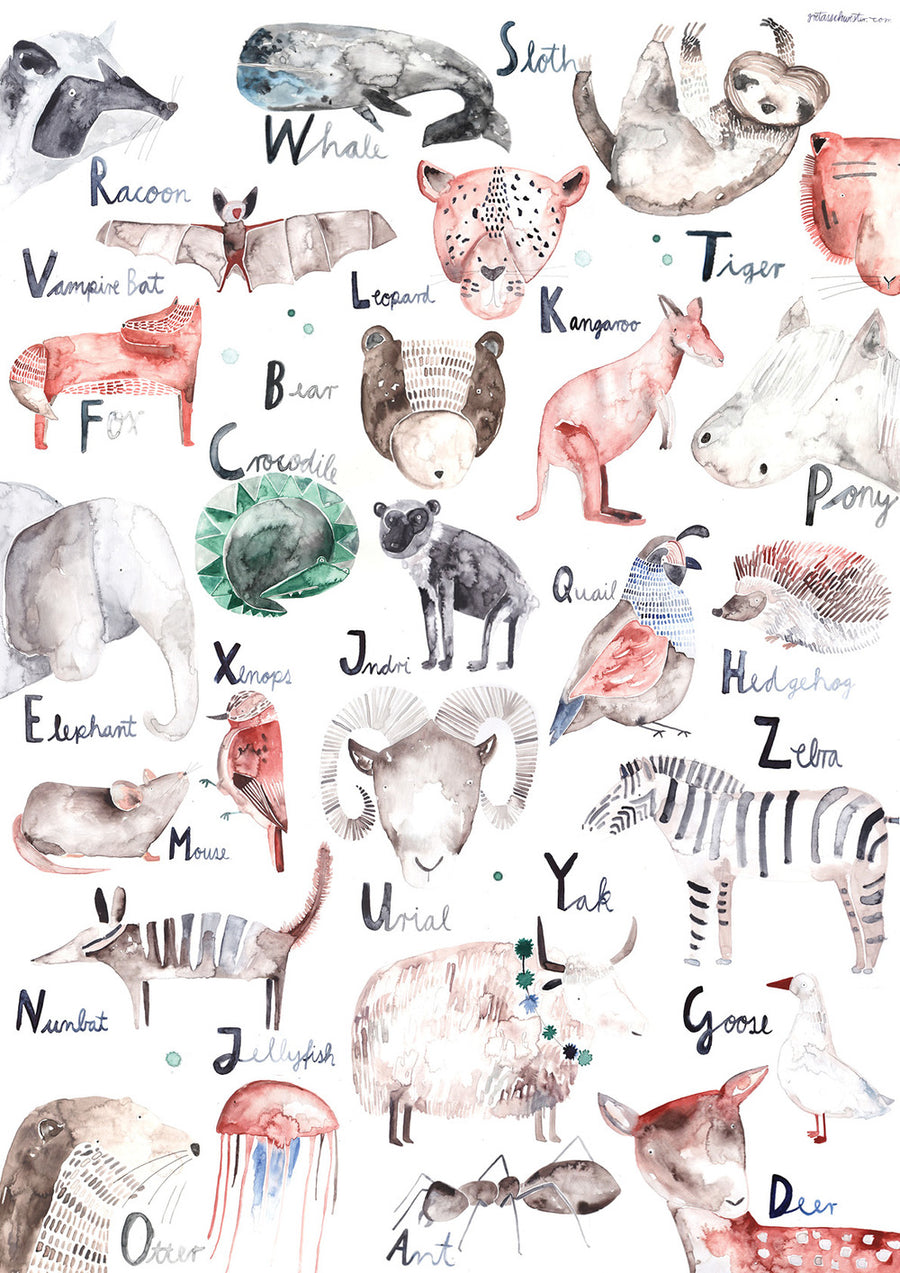 gretasschwester.com
Sloth
Whale
Racoon
Tiger
Vampire Bat
Leopard
Kangaroo
Bear
Fox
Crocodile
Pony
Quail
Indri
Xenops
Hedgehog
Elephant
Zebra
Mouse
Yak
Urial
Nunbat
Goose
Jellyfish
Deer
Otter
Ant